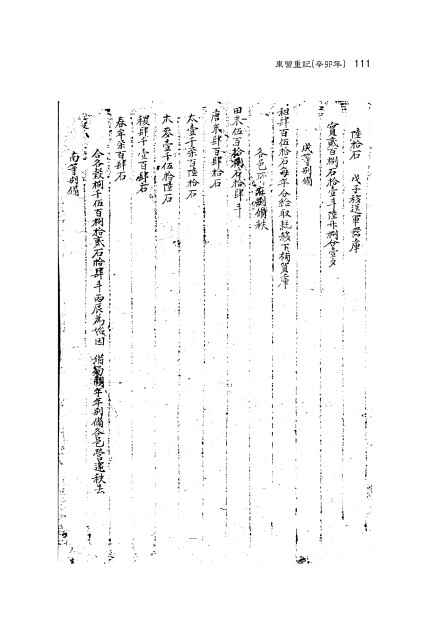 東營重記(辛卯年) 111
陸拾石 戊子移送軍器庫
實貳百捌石拾壹斗陸升捌合壹夕
戊等別備
租肆百伍拾石每年分給取耗移下補賞庫
各邑所在別備秩
田米伍百拾捌石拾肆斗
唐米肆百肆拾石
太壹千柒百陸拾石
木麥壹千伍拾陸石
稷肆千壹百肆石
春牟柒百肆石
合各穀捌千伍百捌拾貳石拾肆斗丙辰爲始因 備蜀 年年別備各邑營還秩去
南等別備